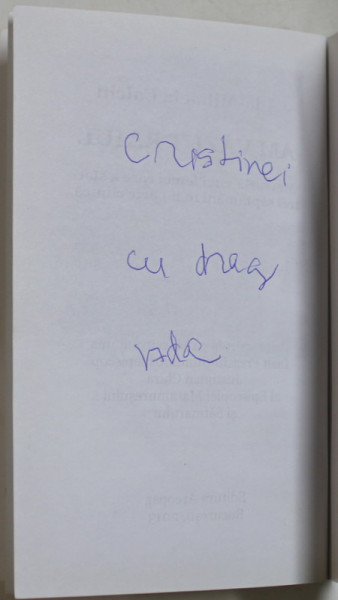 Cristinei
cu drag
Ada